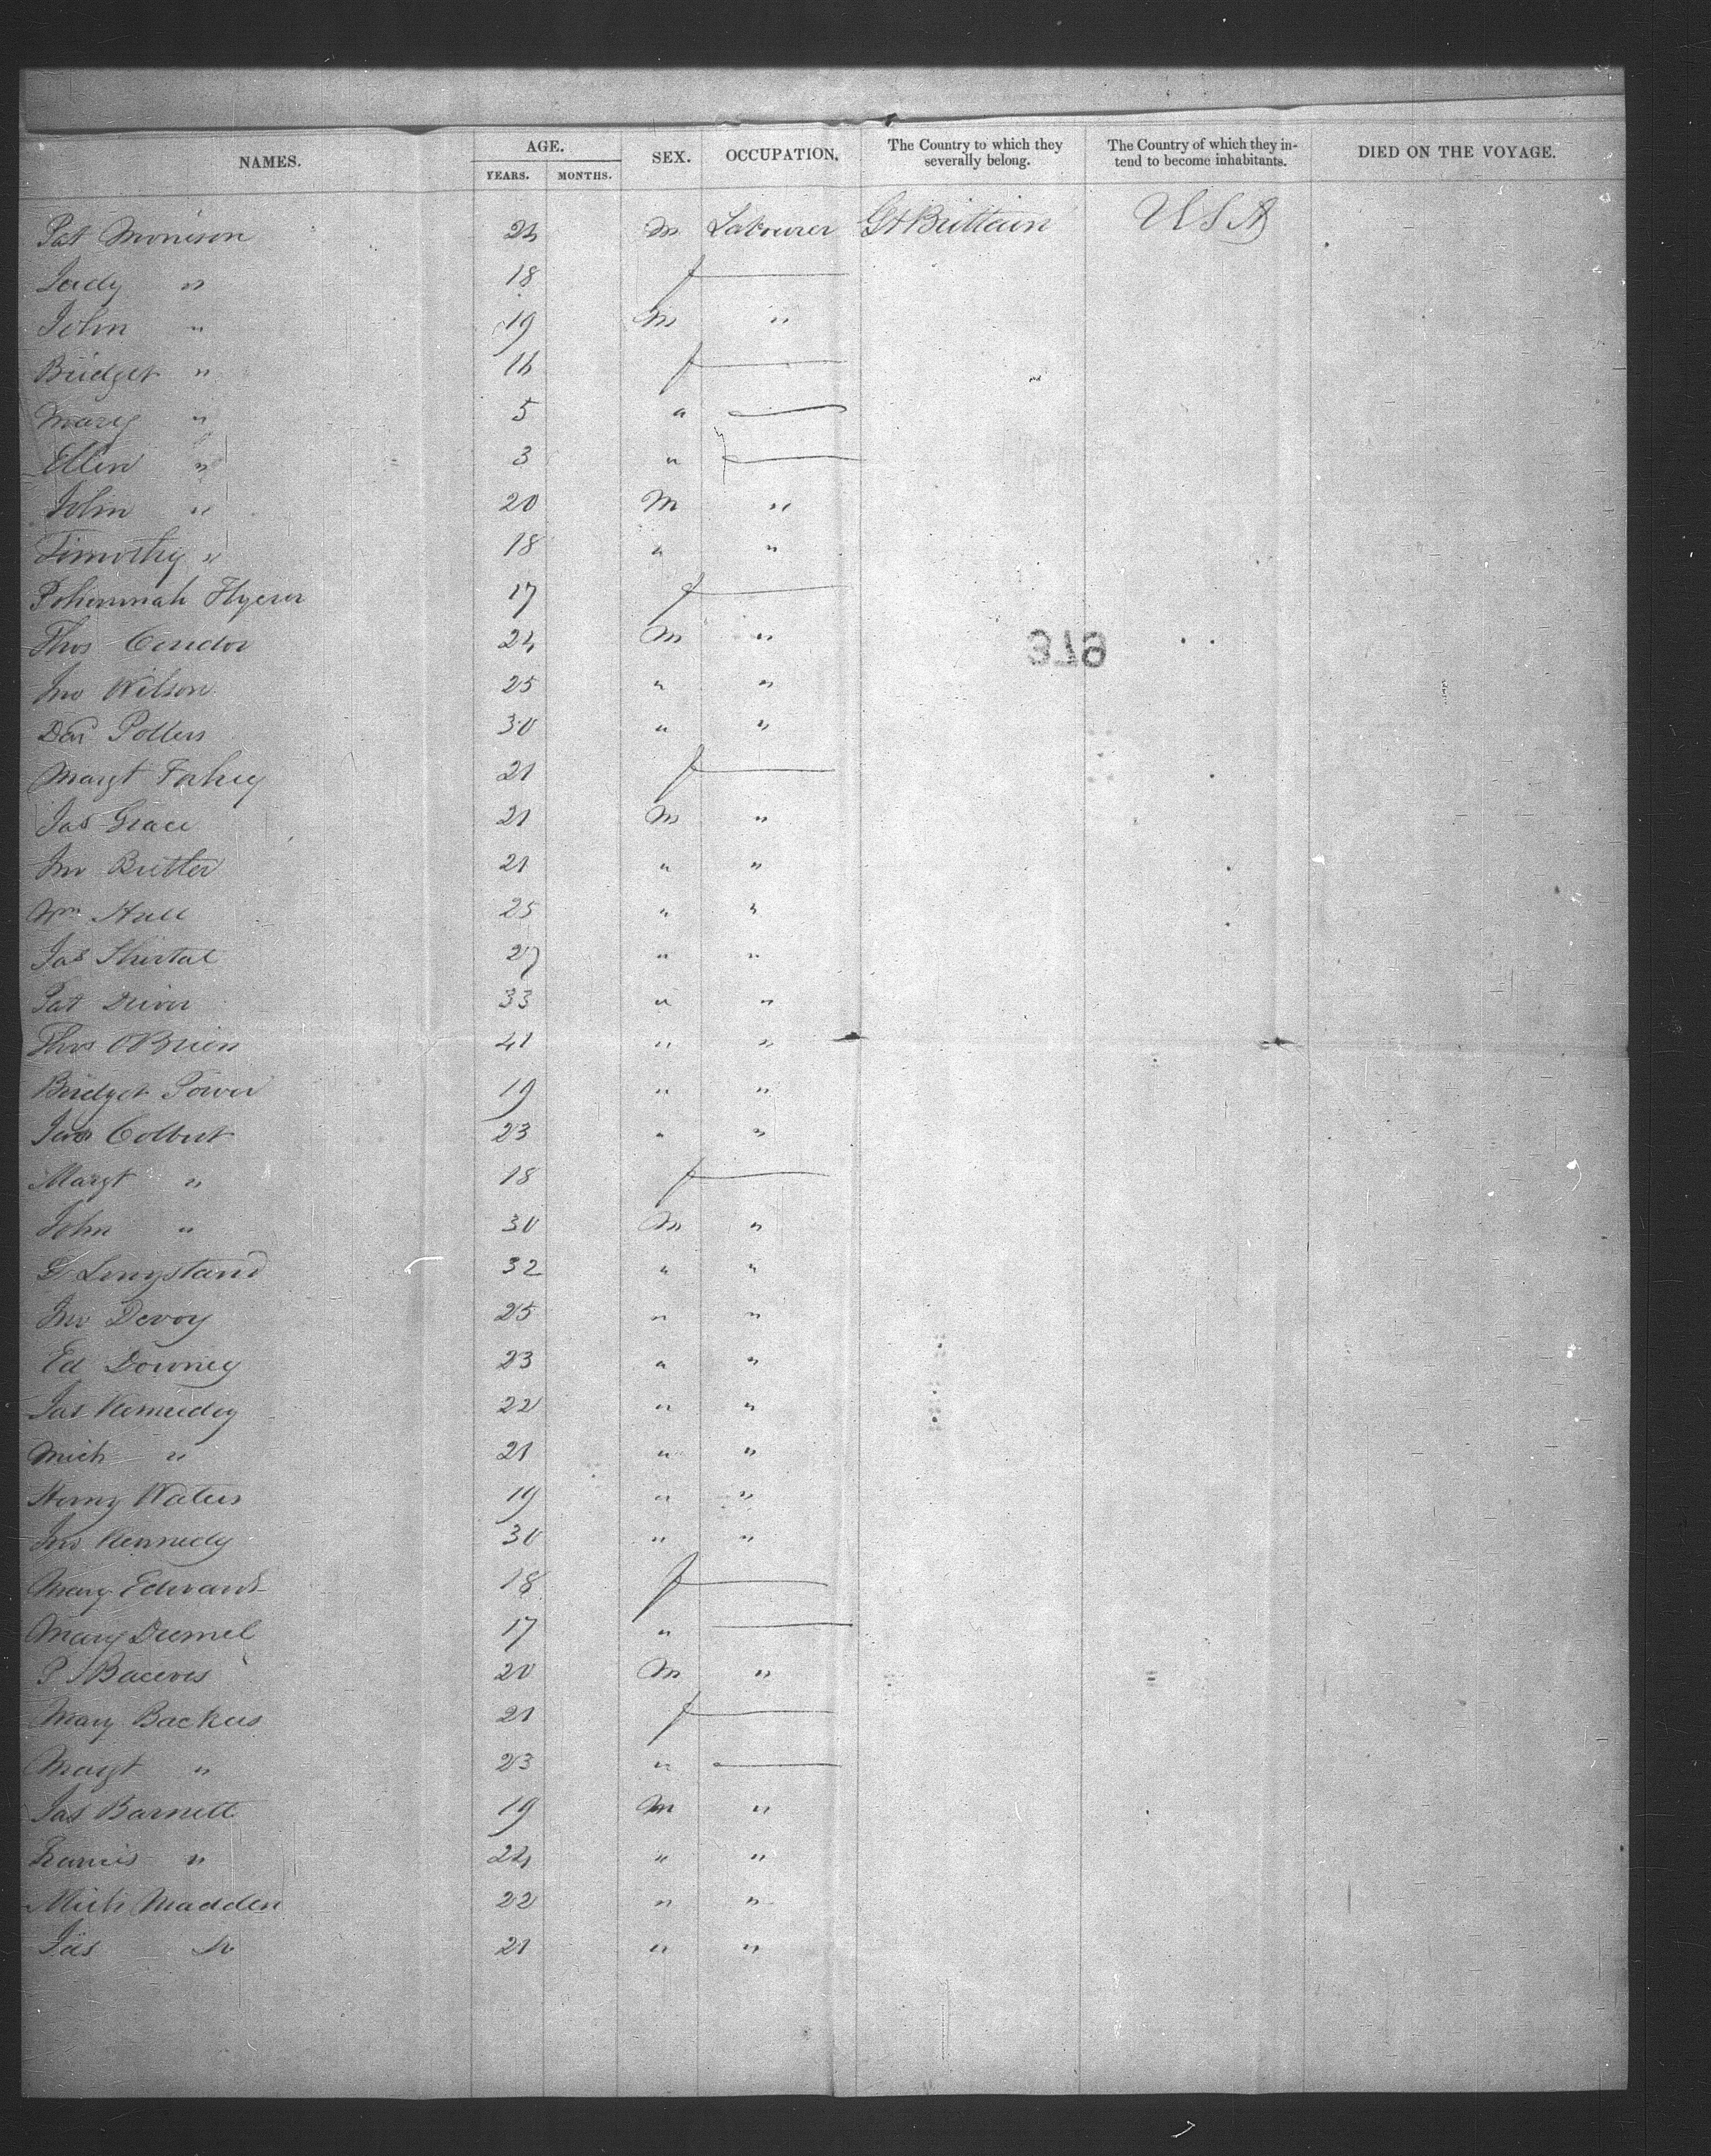 NAMES. AGE. YEARS. MONTHS. SEX. OCCUPATION. The Country to which they severally belong. The Country of which they intend to become inhabitants. DIED ON THE VOYAGE.
Pat Morrison 24 m Labourer Gt Brittain USA
Judy " 18 f —
John " 19 m "
Bridget " 16 f —
Mary " 5 " —
Ellen " 3 " —
John " 20 M "
Timothy " 18 " "
Johannah 17 f —
Thos Condor 24 M "
Jno Wilson 25 " "
Danl 30 " "
Margt Fahey 21 f —
Jas Grace 21 M "
Jno Butler 21 " "
Wm Hall 25 " "
Jas 27 " "
Pat 33 " "
Thos OBrien 41 " "
Bridget Power 19 " "
Jas Colbert 23 " "
Margt " 18 f —
John " 30 M "
32 " "
Jno Devoy 25 " "
Ed Downey 23 " "
Jas Kennedy 22 " "
Mich " 21 " "
Henry Waters 19 " "
Jno Kennedy 30 " "
Mary Edwards 18 f —
Mary 17 " —
P 20 M "
Mary Backus 21 f —
Margt " 23 " —
Jas Barnett 19 M "
Francis " 24 " "
Mich Madden 22 " "
Jas 21 " "
379